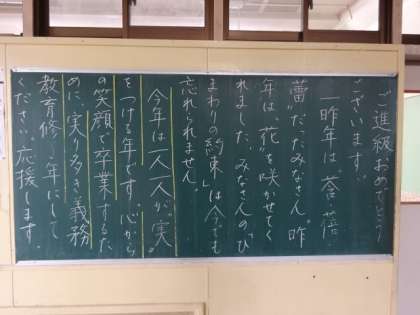 ご進級おめでとう
ございます。
一昨年は〝蒼蓓
蕾〟だったみなさん。昨
年は、花〟を咲かせてく
れました。みなさんの「ひ
まわりの約束」は今でも
忘れられません。
今年は一人一人が〝実〟
をつける年です。心から
の笑顔で卒業するた
めに、実り多き義務
教育修了年にして
ください。応援します。